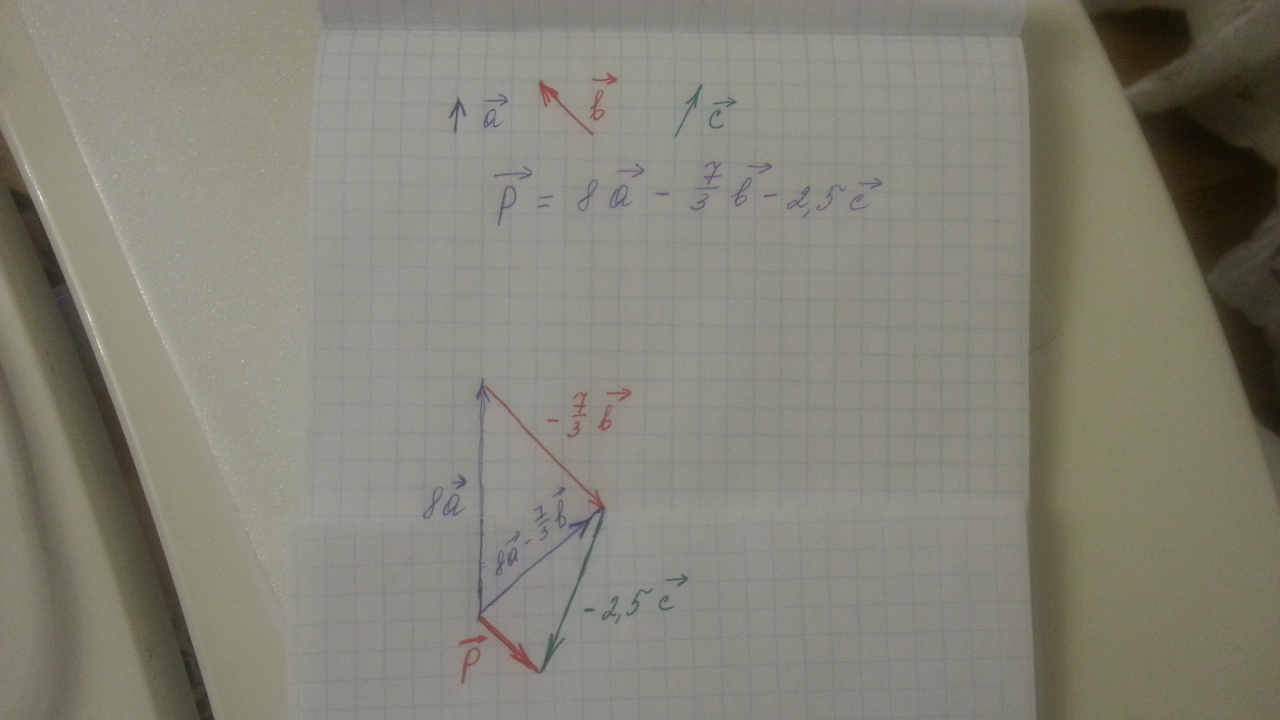 a⃗ b⃗ c⃗
p⃗ = 8a⃗ - 7/3 b⃗ - 2,5c⃗
- 7/3 b⃗
8a⃗
8a⃗ - 7/3 b⃗
- 2,5c⃗
p⃗